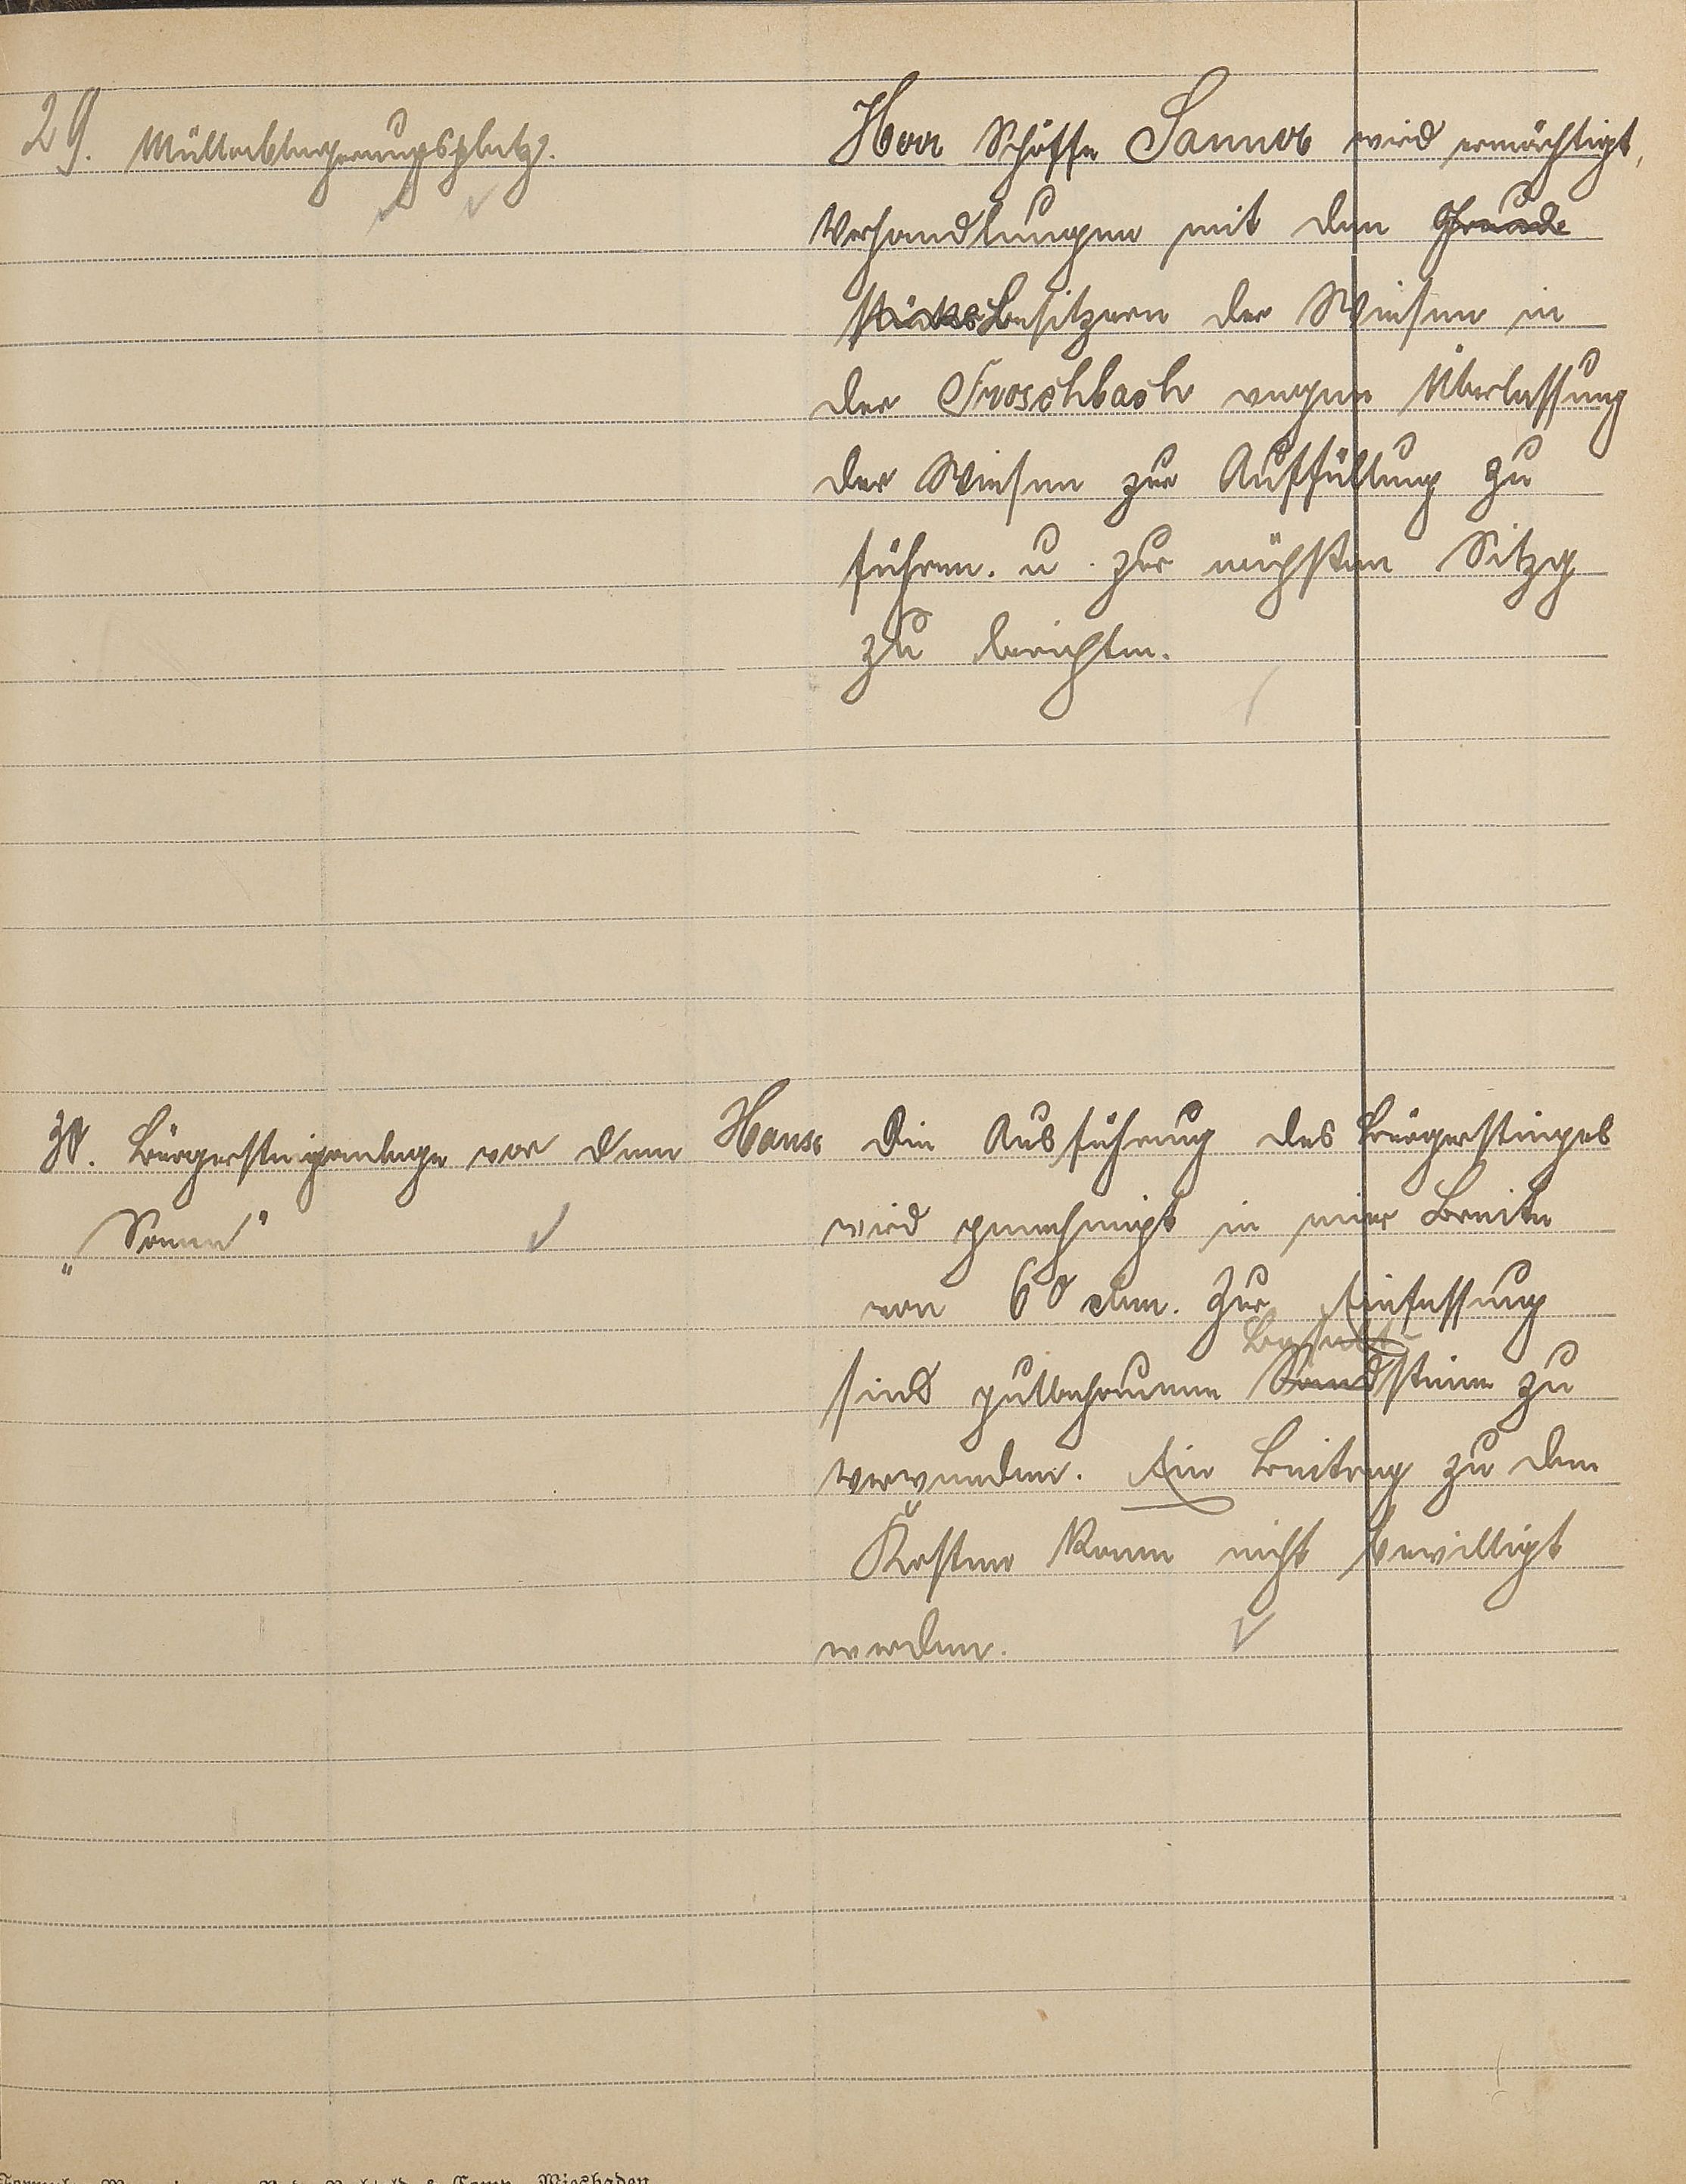 29. Müllablagerungsplatz.
Herr Schöffe Sauner wird ermächtigt,
Verhandlungen mit den Grund-
stücksbesitzern der Wiesen in
der Froschbach wegen Überlassung
der Wiesen zur Auffüllung zu
führen. u. zur nächsten Sitzg
zu berichten.
30. Bürgersteiganlage vor dem Hause
"Sonne"
Die Ausführung des Bürgersteiges
wird genehmigt in einer Breite
von 60 cm. Zur Einfassung
Basalt-
sind gutbehauene Sandsteine zu
verwenden. Ein Beitrag zu den
Kosten kann nicht bewilligt
werden.
& Comp. Wiesbaden